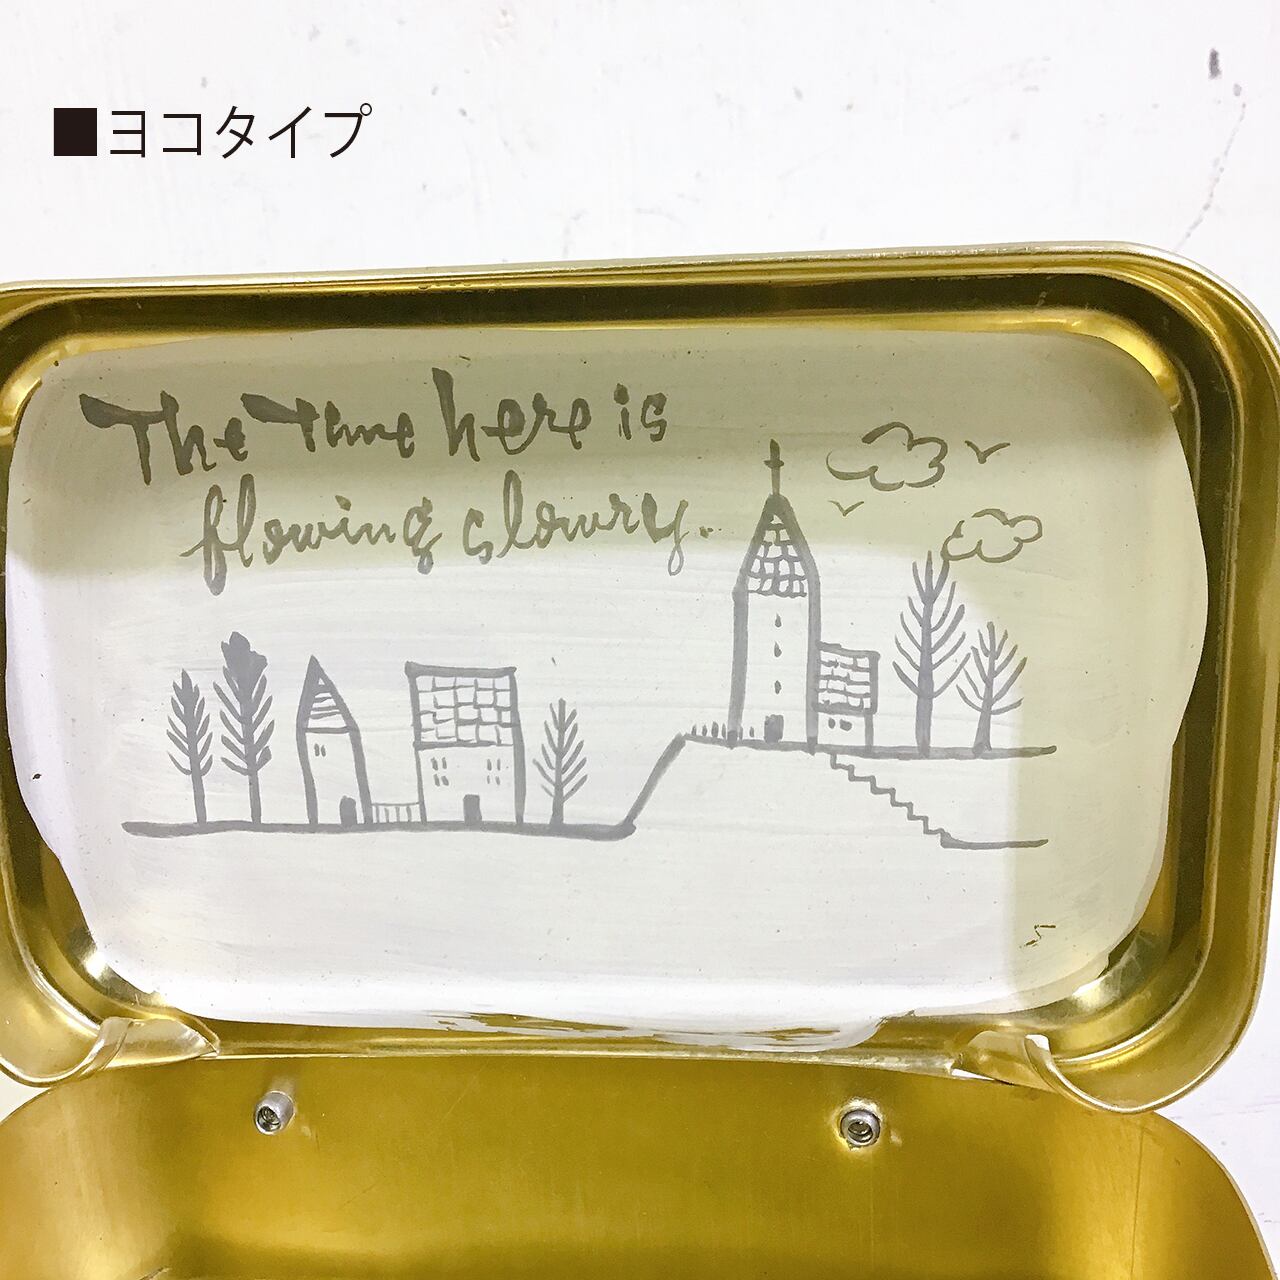 ■ヨコタイプ
The Time here is
flowing slowry.